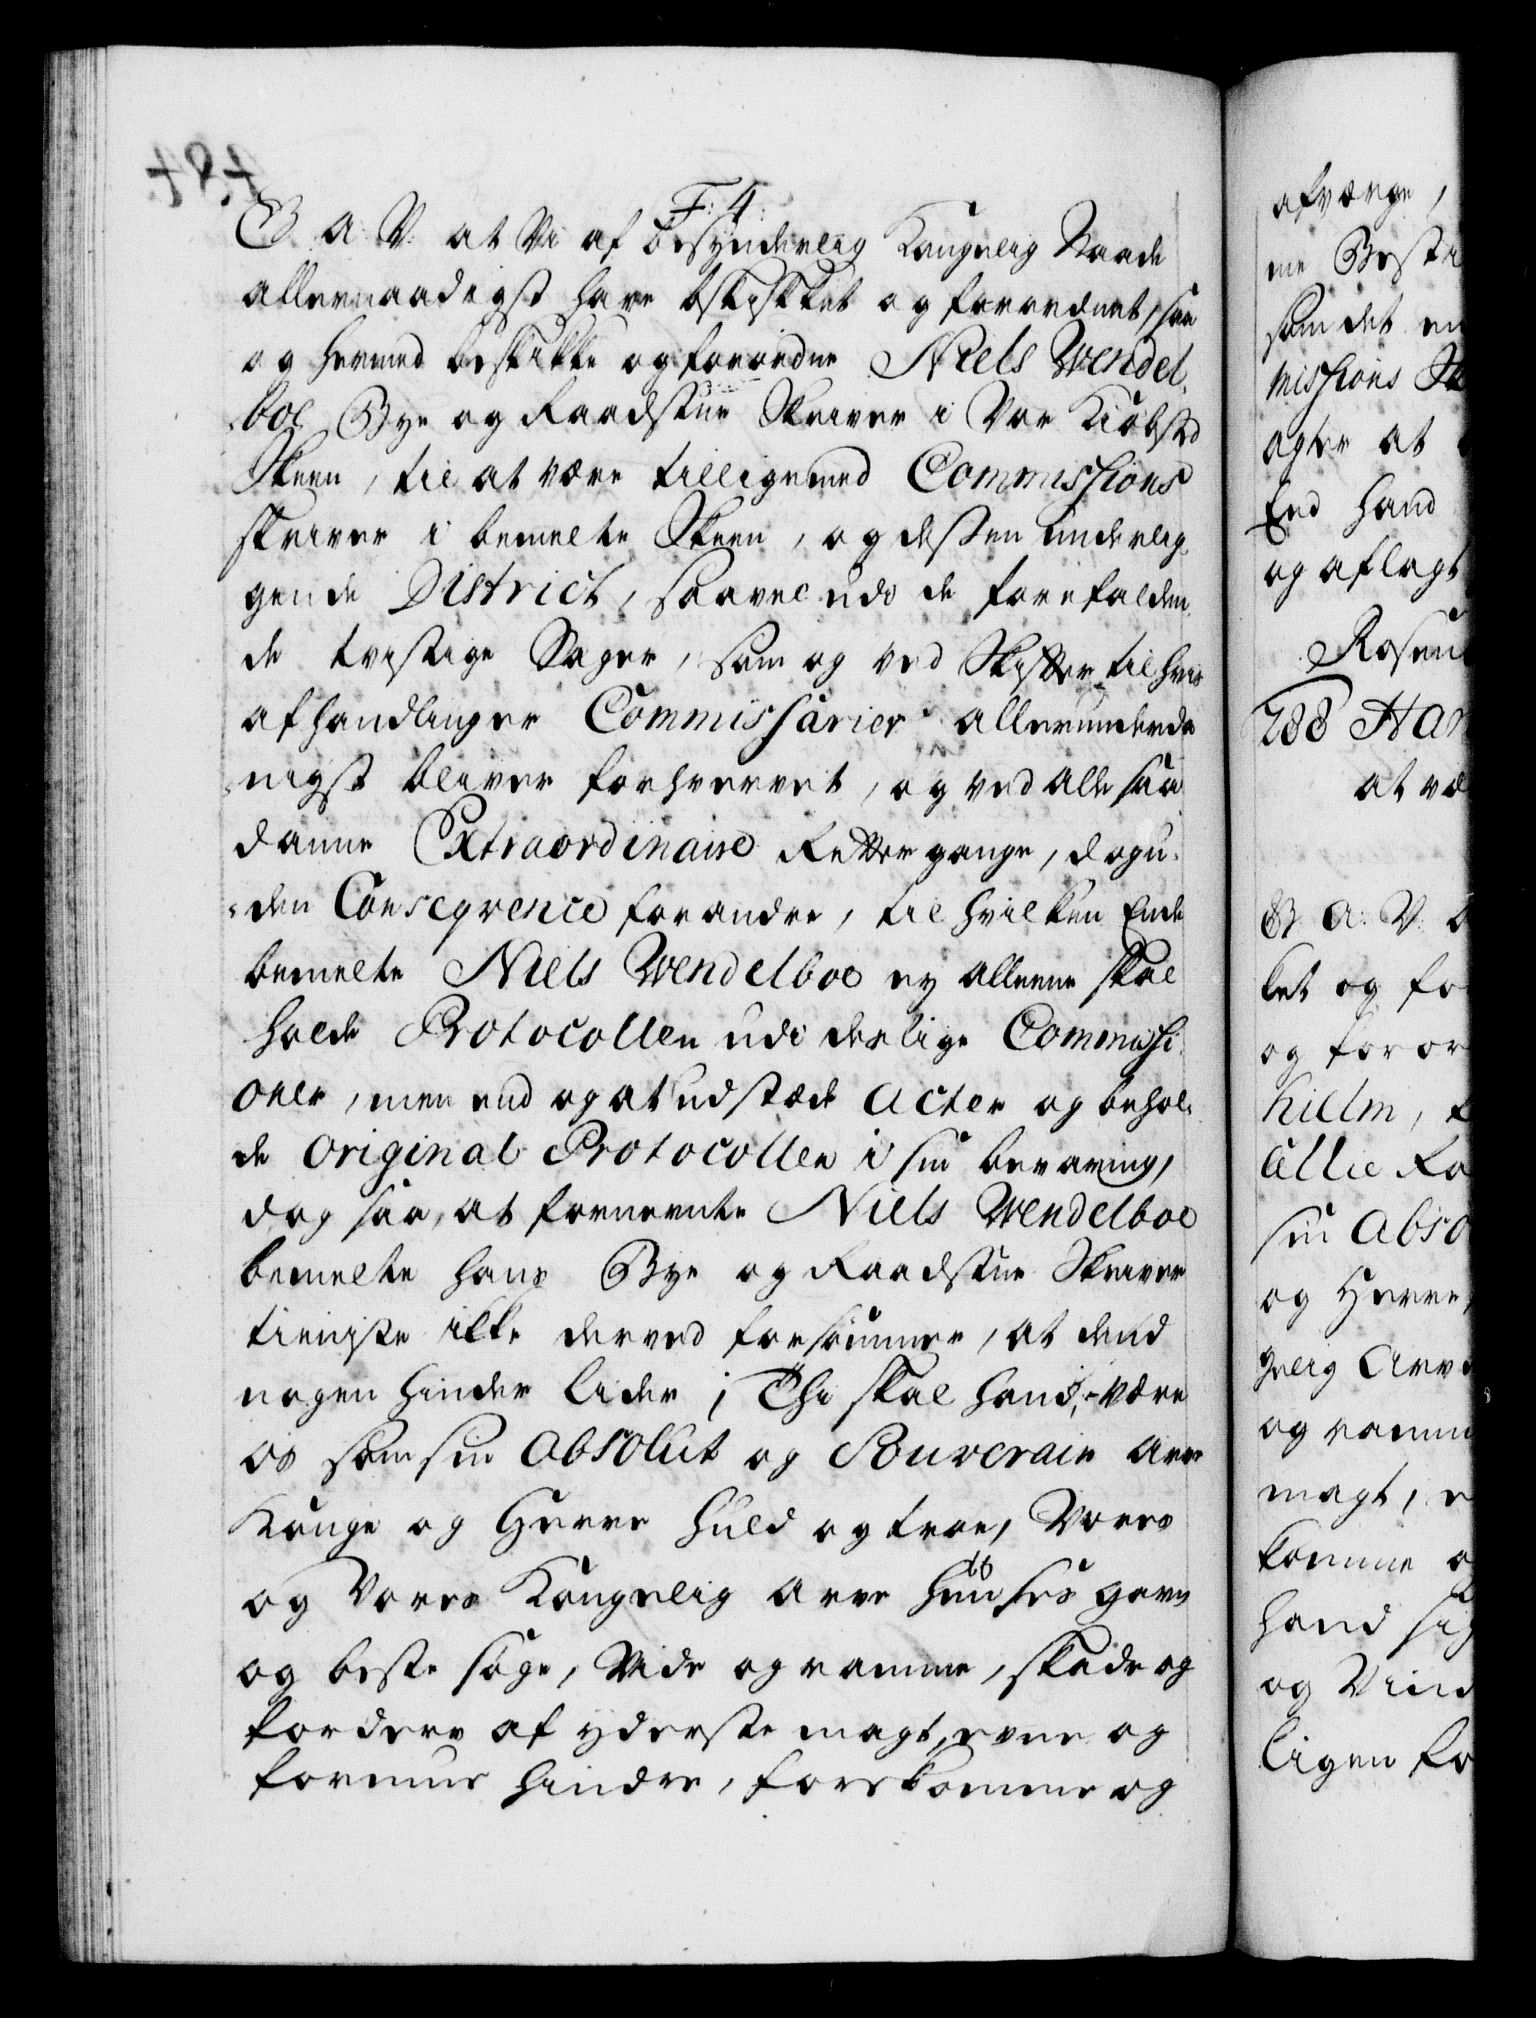 F: 4.
G. A: V. at Vi af besynderlig Kongelig Naade
allernaadigst have bskikket og forordnet, saa
og hermed beskikke og forordne Niels Wendel-
boe Bye og Raadstue Skriver i Vor Kiøbsted
Skeen, til at være tilligemed Commissions
skriver i bemelte Skeen, og dessen underlig-
gende District, saavel udi de forefalden-
de tvistige Sager, som og ved Skifter til hvis
afhandlinger Commissarier allerunderda-
nigst bliver forhvervet, og ved alle saa
danne Extraordinaire Rettergange, dog u-
den Conseqvence for andre, til hvilken Ende
bemelte Niels Wendelboe ey alleene skal
holde Protocollen udi deslige Commissi-
oner, men end og at udstæde Acter og behol-
de Original Protocollen i sin bevaring,
dog saa, at fornevnte Niels Wendelboe
bemelte hans Bye og Raadstue Skriver
tieniste ikke derved forsømmer, at dend
nogen hinder lider; Thi skal hand, være
os som sin Absolut og Souverain Arve
Konge og Herre huld og troe, Vores
og Vores Kongelig Arve Huuses gavn
og beste søge, Vide og ramme, skade og
fordærv af yderste magt, evne og
formue hindre, forekomme og
afværge,
me Besti
som det en
missions
agter at
Eed hand
og aflagt
Rosen
288 Han
at væ
G. A: V. b
ket og fo
og foror
hielm, t
Ellie Ra
sin Abso
og Herre,
gelig Arve
og ramme
magt, e
komme o
hand sig
og Vind
ligen fo